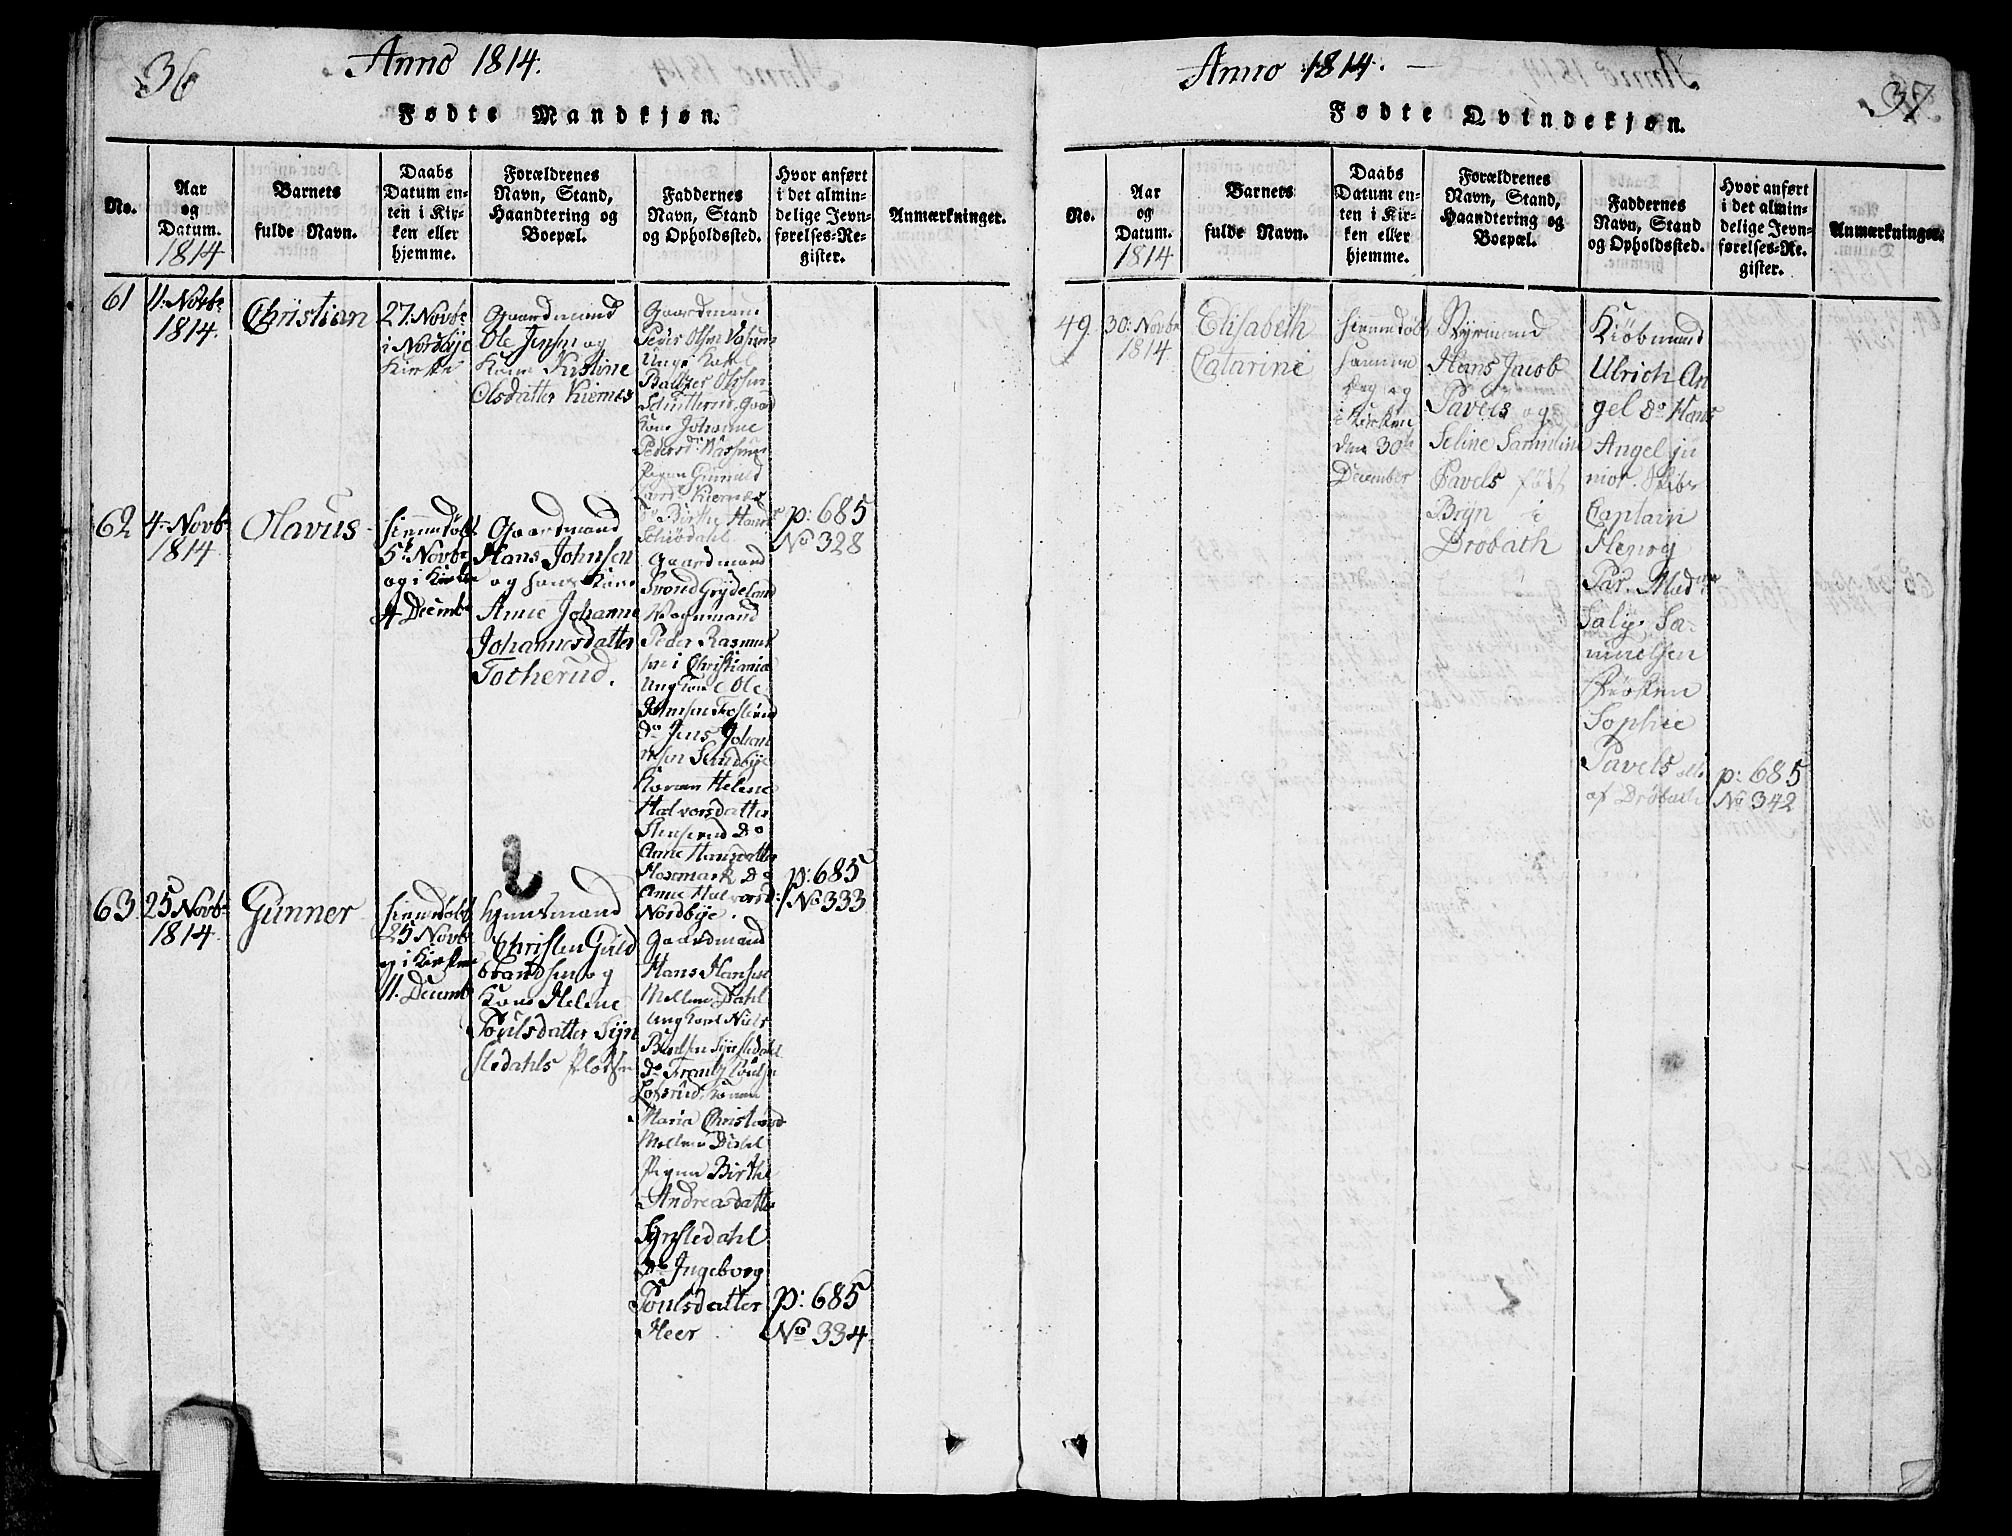 36
Anno 1814.
Fødte Mandkjøn.
No.
Aar
og
Datum.
1814
Barnets
fulde Navn.
Daabs
Datum en-
ten i Kir-
ken eller
hjemme.
Forældrenes
Navn, Stand,
Haandtering og
Boepæl.
Faddernes
Navn, Stand
og Opholdssted.
Hvor anført
i det almin-
delige Jevn-
førelses-Re-
gister.
Anmærkninger.
61
11. Novbr
1814.
Christian
27. Novbr
i Nordbye
Kirke
Gaardmand
Ole Jensen og
Kone Kistine
Olsdatter Kiernes
Gaardmand
Peder Olsen
Unge Karl
Baltzer Olsen
Kone Johanne
Pedersdr
Pigen Gunnild
Kiernes
do Birthe Hansdr
p: 685
No 328
62
4. Novbr
1814
Olavus
hiemmedøbt
5te Novbr
og i Kirken
4 Decembr
Gaardmand
Hans Johnsen
og hans Kone
Anne Johanne
Johannesdatter
Totherud.
Gaardmand
Svend Grydeland
Vognmand
Peder Rasmus
sen i Christiania
Ungkarl Ole
Johnsen
do Jens Johan
nesen Sundbye
Konen Helene
Halvorsdatter
Stenserud do
Anne Hansdatter
do
Anne Halvorsd:
Nordbye.
p: 685
No 333
63
25 Novbr
1814
Gunner
hiemmedøbt
25 Novbr
og i Kirken
11. Decembr
Huusmand
Christen Guld
brandsen og
Kone Helene
Poulsdatter Syn
sledahls Pladsen
Gaardmand
Hans Hansen
Mellem Dahl
Ungkarl Niels
Bentsen Synsledahl
do Frantz Poulsen
Lofsrud, Konen
Maria Christiansd
Mellem Dahl
Pigen Birthe
Andreasdatter
Synsledahl
do Ingeborg
Poulsdatter
Heer
p: 685
No 334
Anno 1814.
37
Fødte Qvindekjøn.
No.
Aar
og
Datum.
1814
Barnets
fulde Navn.
Daabs
Datum en-
ten i Kir-
ken eller
hjemme.
Forældrenes
Navn, Stand,
Haandtering og
Boepæl.
Faddernes
Navn, Stand
og Opholdssted.
Hvor anført
i det almin-
delige Jevn-
førelses-Re-
gister.
Anmærkninger.
49.
30. Novbr
1814
Elisabeth
Catarine
hiemmedøbt
samme
Dag og
i Kirken
den 30te
December
Styrmand
Hans Jacob
Pavels og
Seline Sammeline
Pavels født
Bryn i
Drobach
Kiøbmand
Ulrich An
gel do Hans
Angel ju
nior. Skibs
Captain
Henrog
Par. Madme
Saly Sa-
muelsen
Frøken
Sophie
Pavels alle
af Drøbach
p: 685
No 342